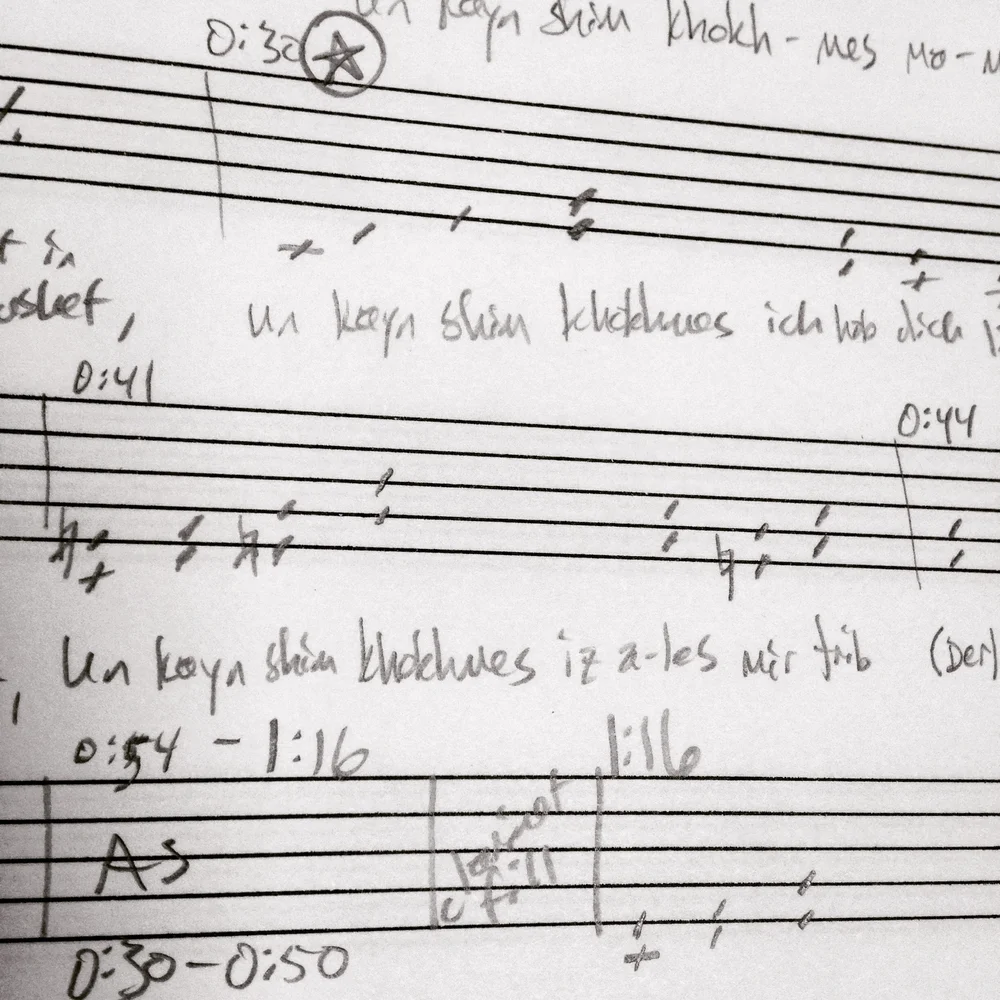 un keyn shim khokh - mes mo -
0:30
in
un keyn shim khokhmes ich hob dich
0:41
0:44
Un keyn shim khokhmes iz a-les mir trib (Der
0:54 - 1:16
1:16
As
clarinet
0:30-0:50